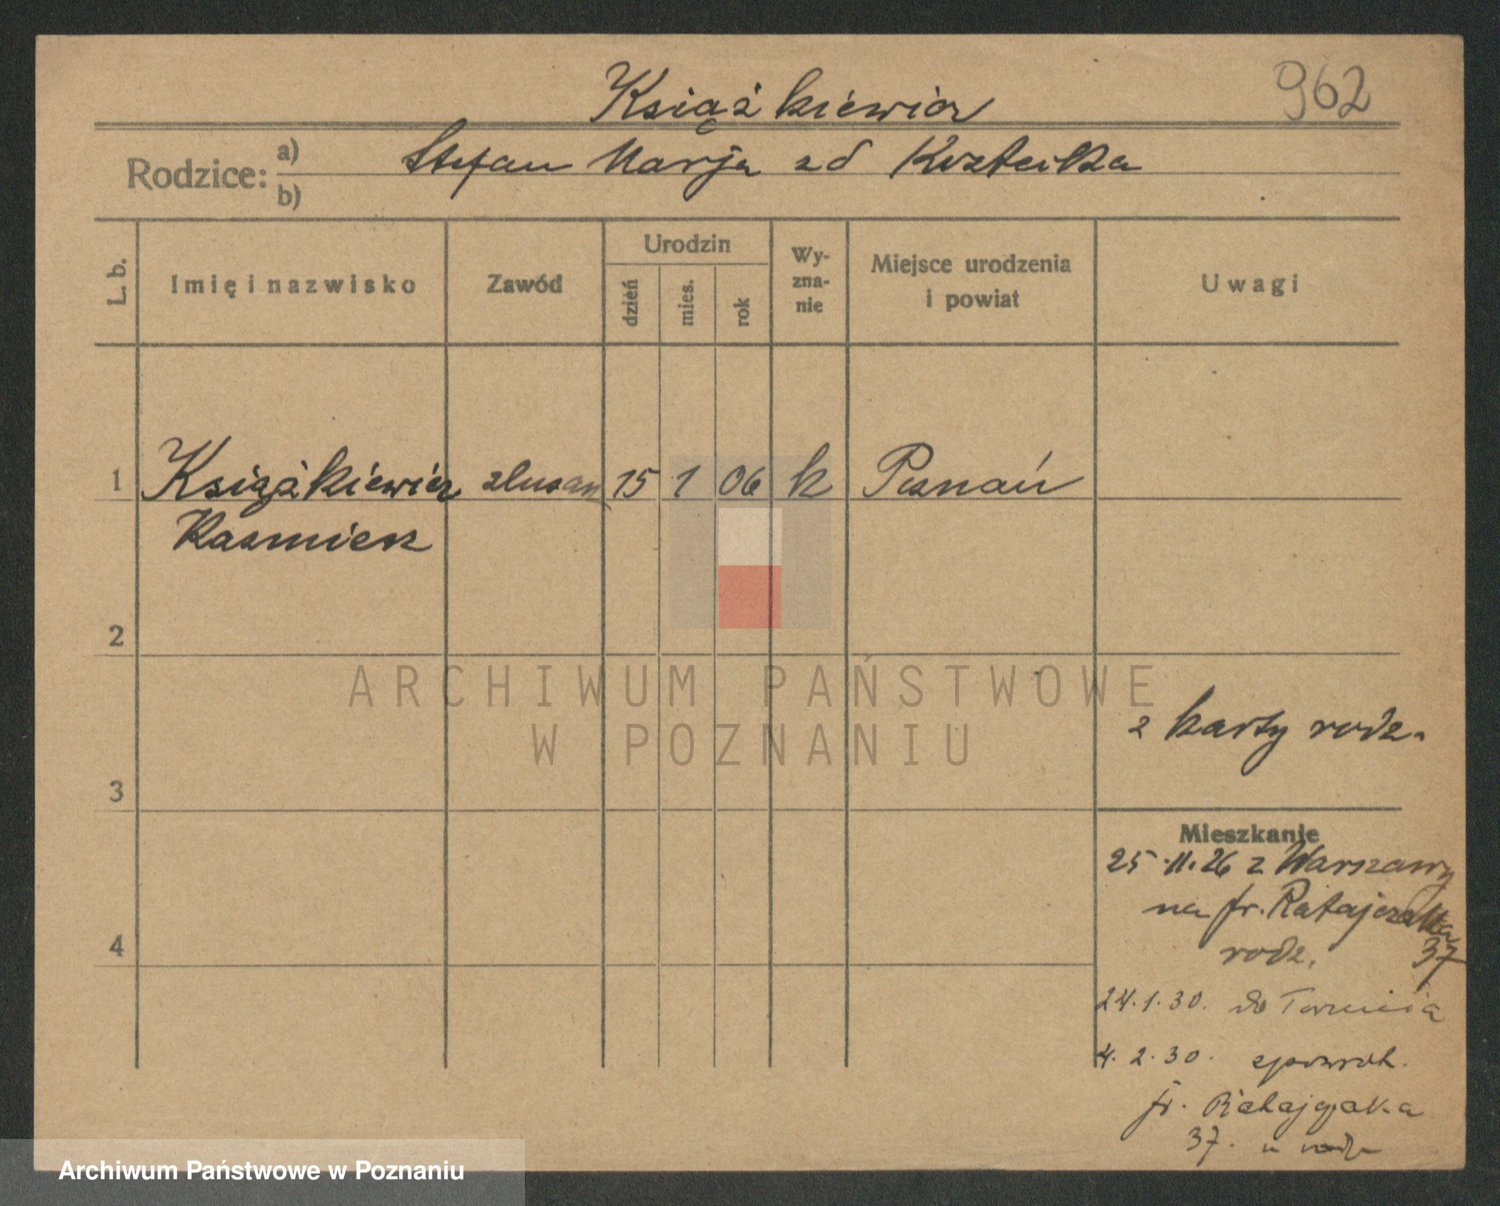 962
Książkiewicz
Rodzice: a) Stefan Marja zd
b)
L. b. Imię i nazwisko Zawód Urodzin dzień mies. rok Wyznanie Miejsce urodzenia i powiat Uwagi
1 Książkiewicz ślusarz 15 1 06 k Poznań
Kazmierz
2
ARCHIWUM PAŃSTWOWE
W POZNANIU
z karty rodz.
3
Mieszkanie
25.11.26 z Warszawy
na fr. Ratajczaka
4
rodz. 37
24.1.30. do Torunia
4.2.30.
fr. Ratajczaka
37. u rodz
Archiwum Państwowe w Poznaniu